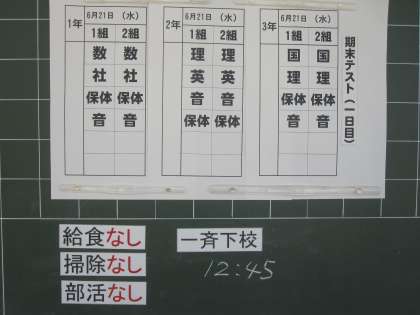 期末テスト（一日目）
1年
6月21日（水）
1組 2組
数 数
社 社
保体 保体
音 音
2年
6月21日（水）
1組 2組
理 理
英 英
音 音
保体 保体
3年
6月21日（水）
1組 2組
国 国
理 理
保体 保体
音 音
給食なし
掃除なし
部活なし
一斉下校
12:45